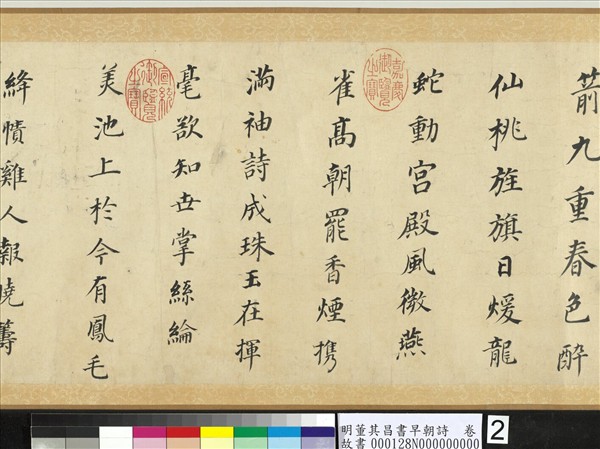 箭九重春色醉
仙桃旌旗日煖龍
蛇動宮殿風微燕
雀髙朝罷香煙携
滿袖詩成珠玉在揮
毫欲知世掌絲綸
美池上於今有鳳毛
絳幘雞人報曉籌
嘉慶御覽之寶
宣統御覽之寶
明董其昌書早朝詩　卷
故書 000128N000000000
2